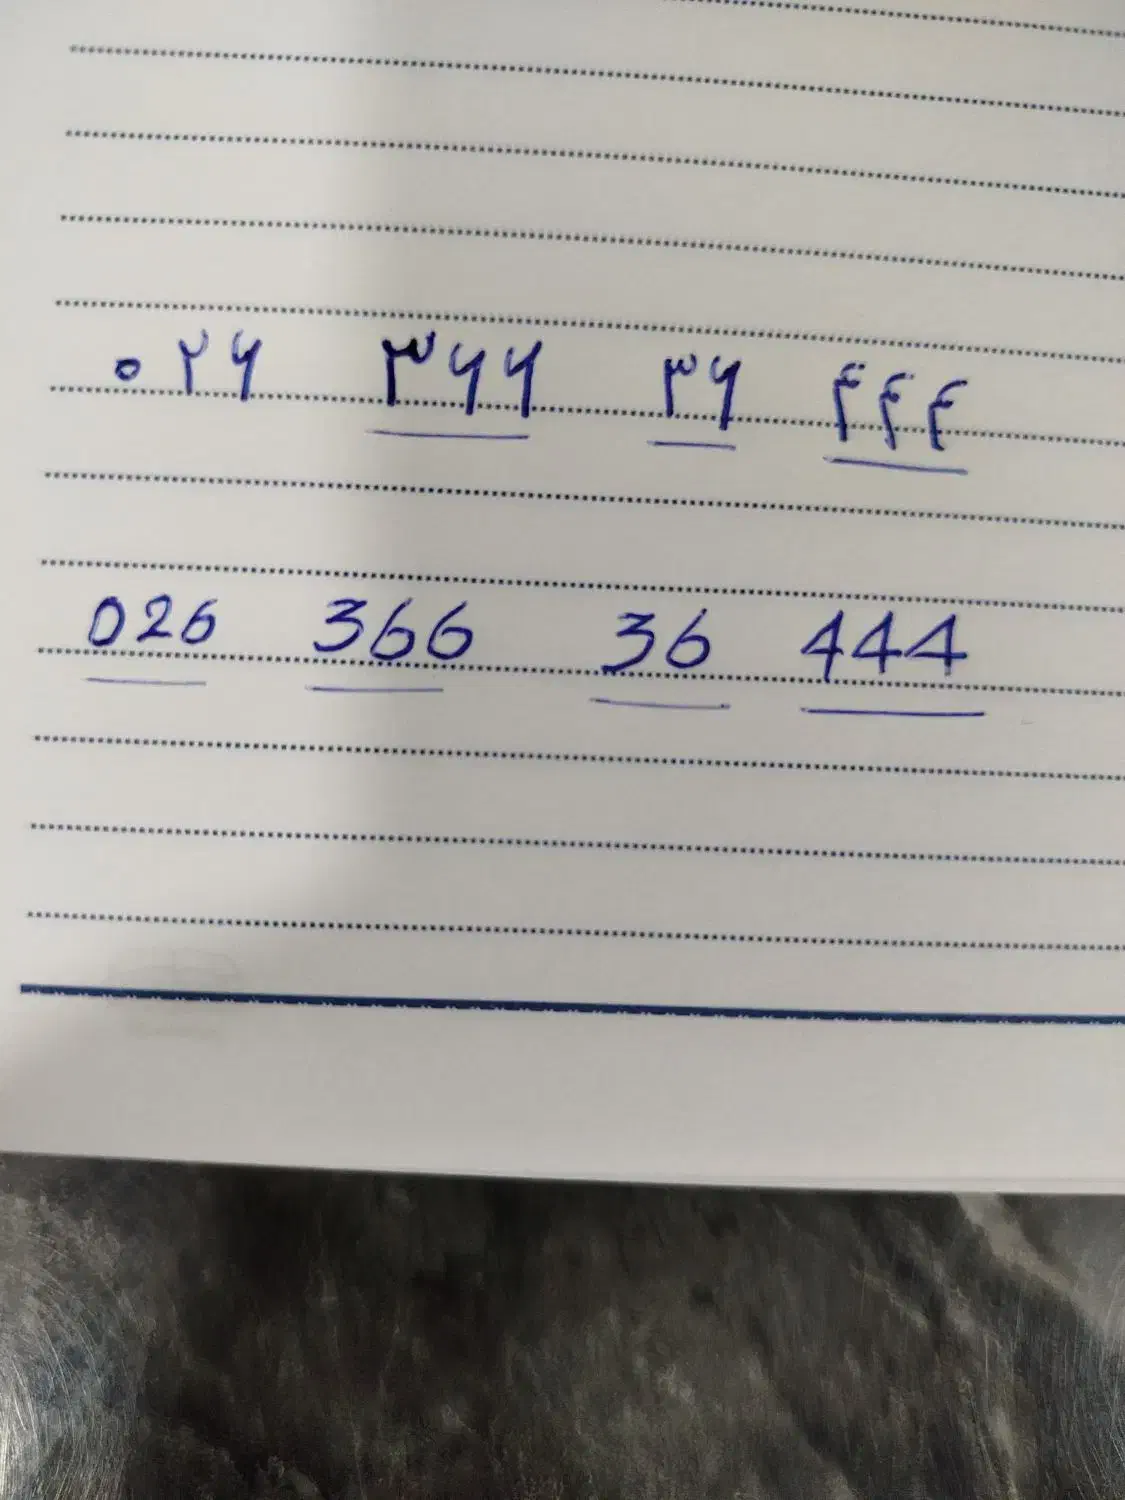 ۰۲۶ ۳۶۶ ۳۶ ۴۴۴
026 366 36 444